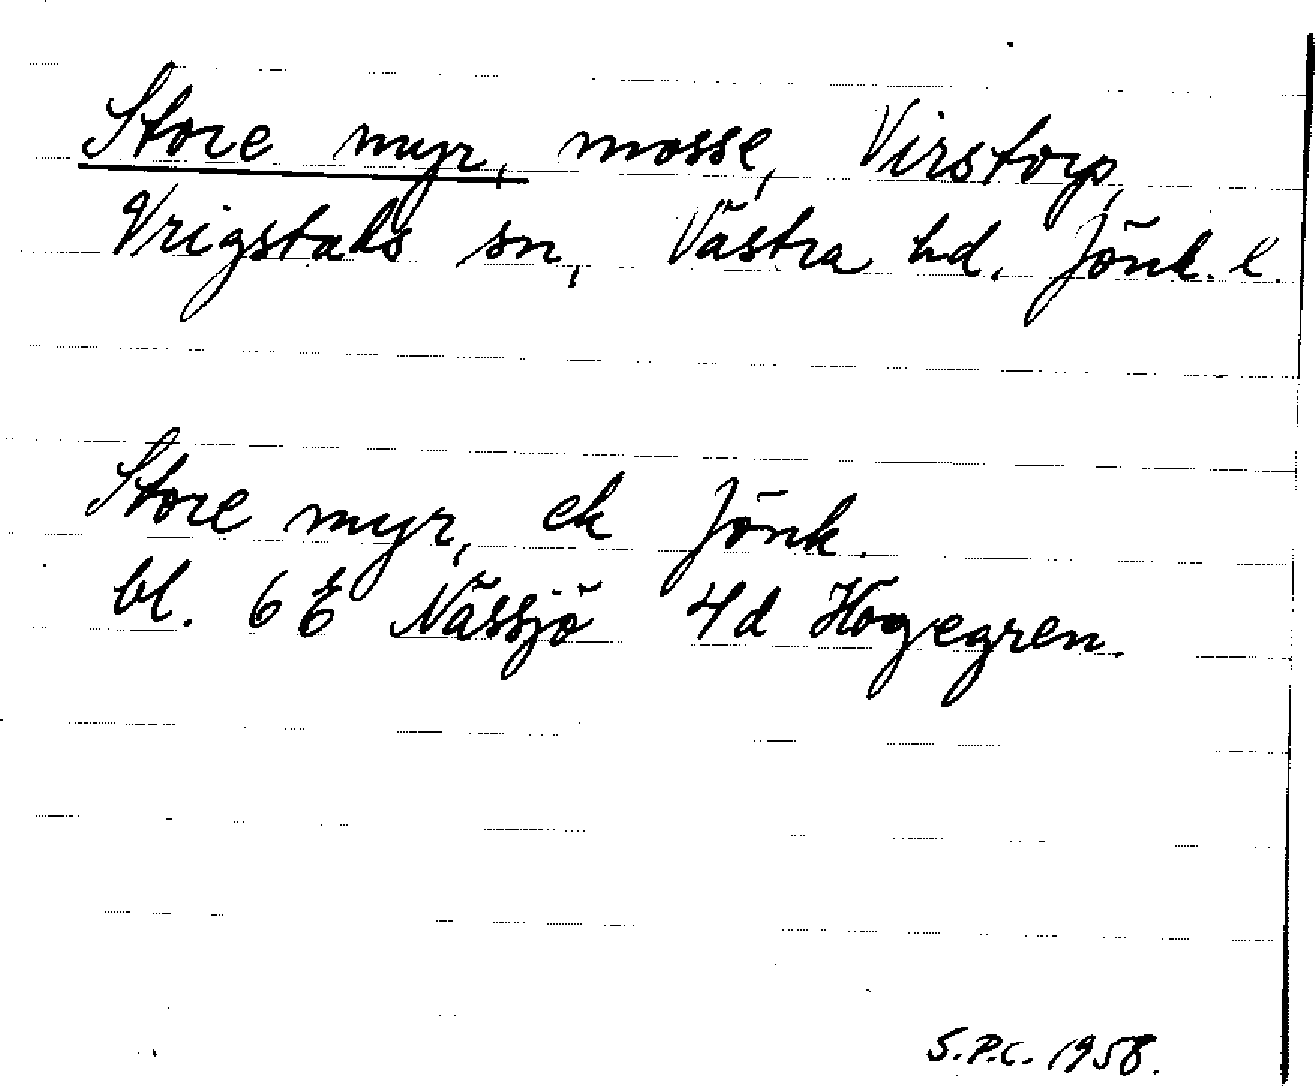 Store myr, mosse, Virstorp,
Vrigstads sn, Västra hd. Jönk. l.
Store myr, ek Jönk.
bl. 6 E Nässjö 4d Hogegren.
S.P.C. 1958.